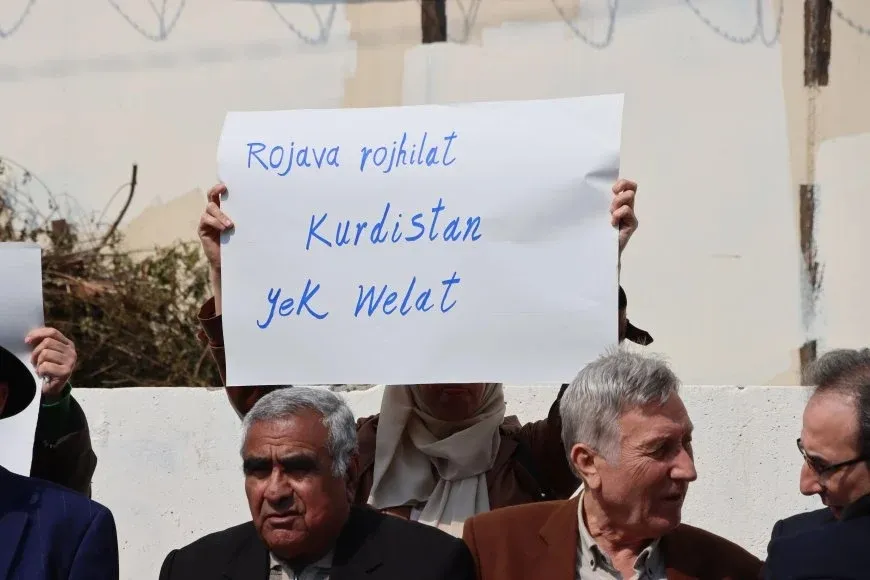 Rojava rojhilat
Kurdistan
yek Welat